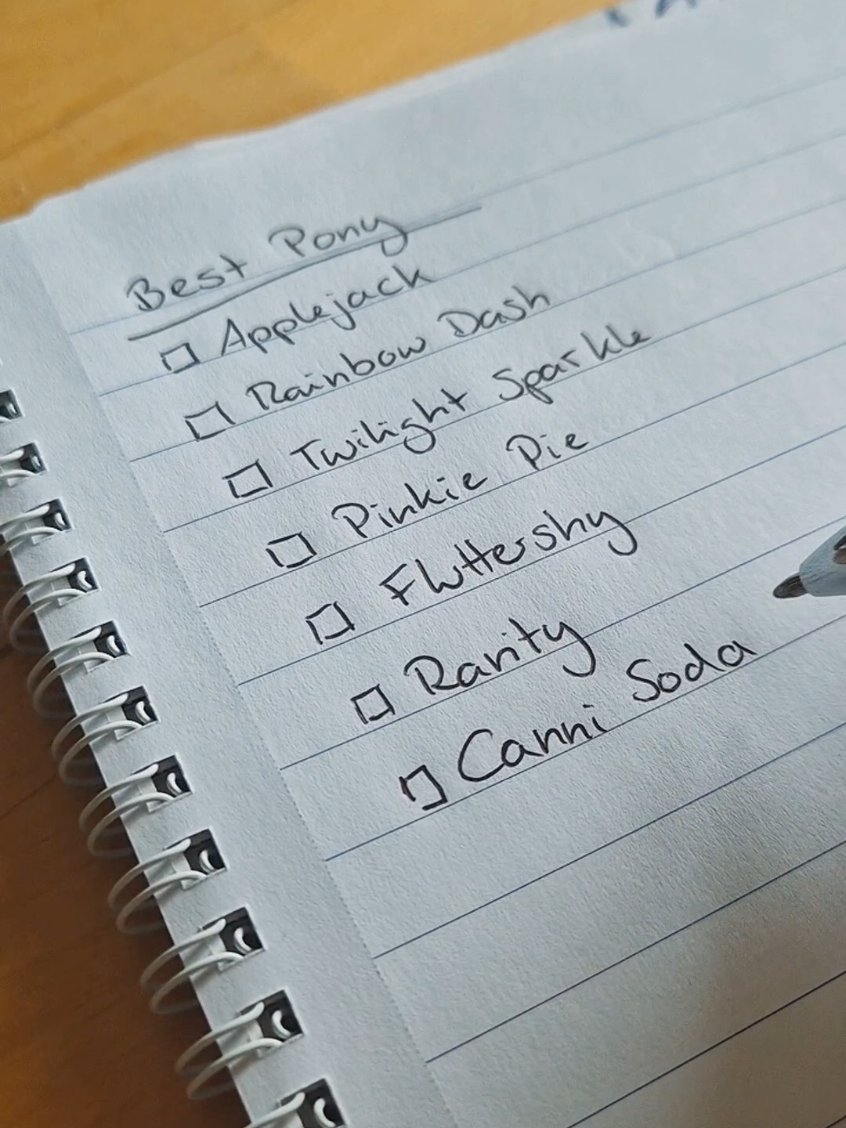 Best Pony
Applejack
Rainbow Dash
Twilight Sparkle
Pinkie Pie
Fluttershy
Rarity
Canni Soda